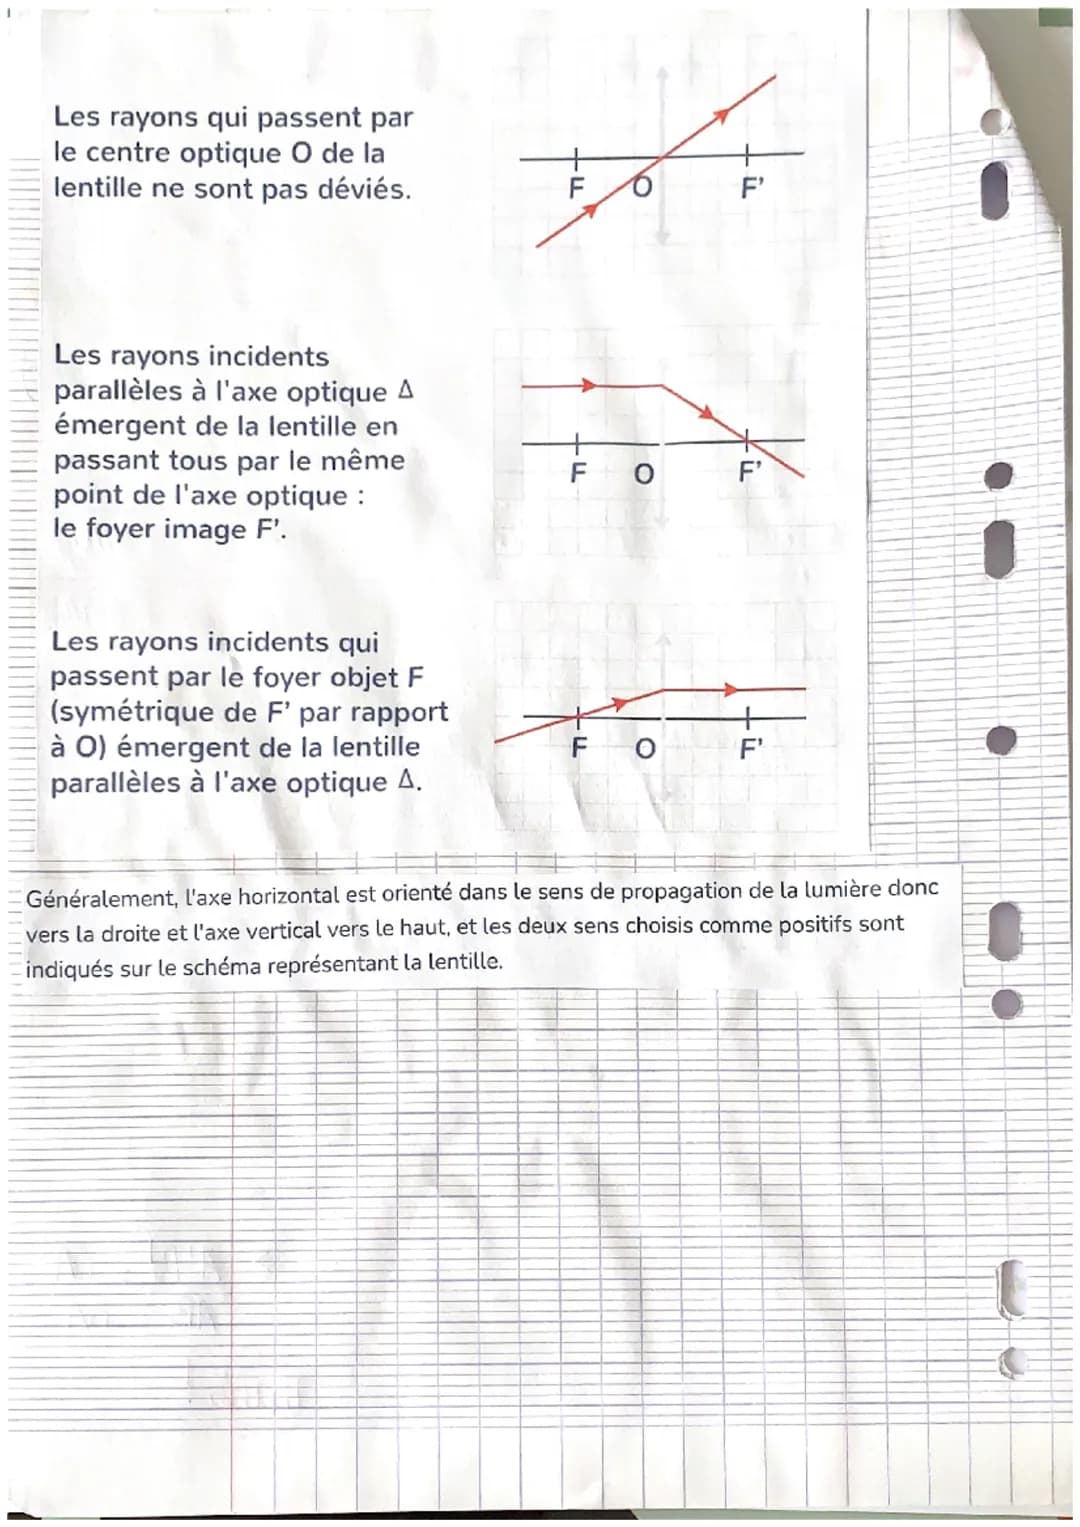 Les rayons qui passent par
le centre optique O de la
lentille ne sont pas déviés.
F O F'
Les rayons incidents
parallèles à l'axe optique Δ
émergent de la lentille en
passant tous par le même
point de l'axe optique :
le foyer image F'.
F O F'
Les rayons incidents qui
passent par le foyer objet F
(symétrique de F' par rapport
à O) émergent de la lentille
parallèles à l'axe optique Δ.
F O F'
Généralement, l'axe horizontal est orienté dans le sens de propagation de la lumière donc
vers la droite et l'axe vertical vers le haut, et les deux sens choisis comme positifs sont
indiqués sur le schéma représentant la lentille.